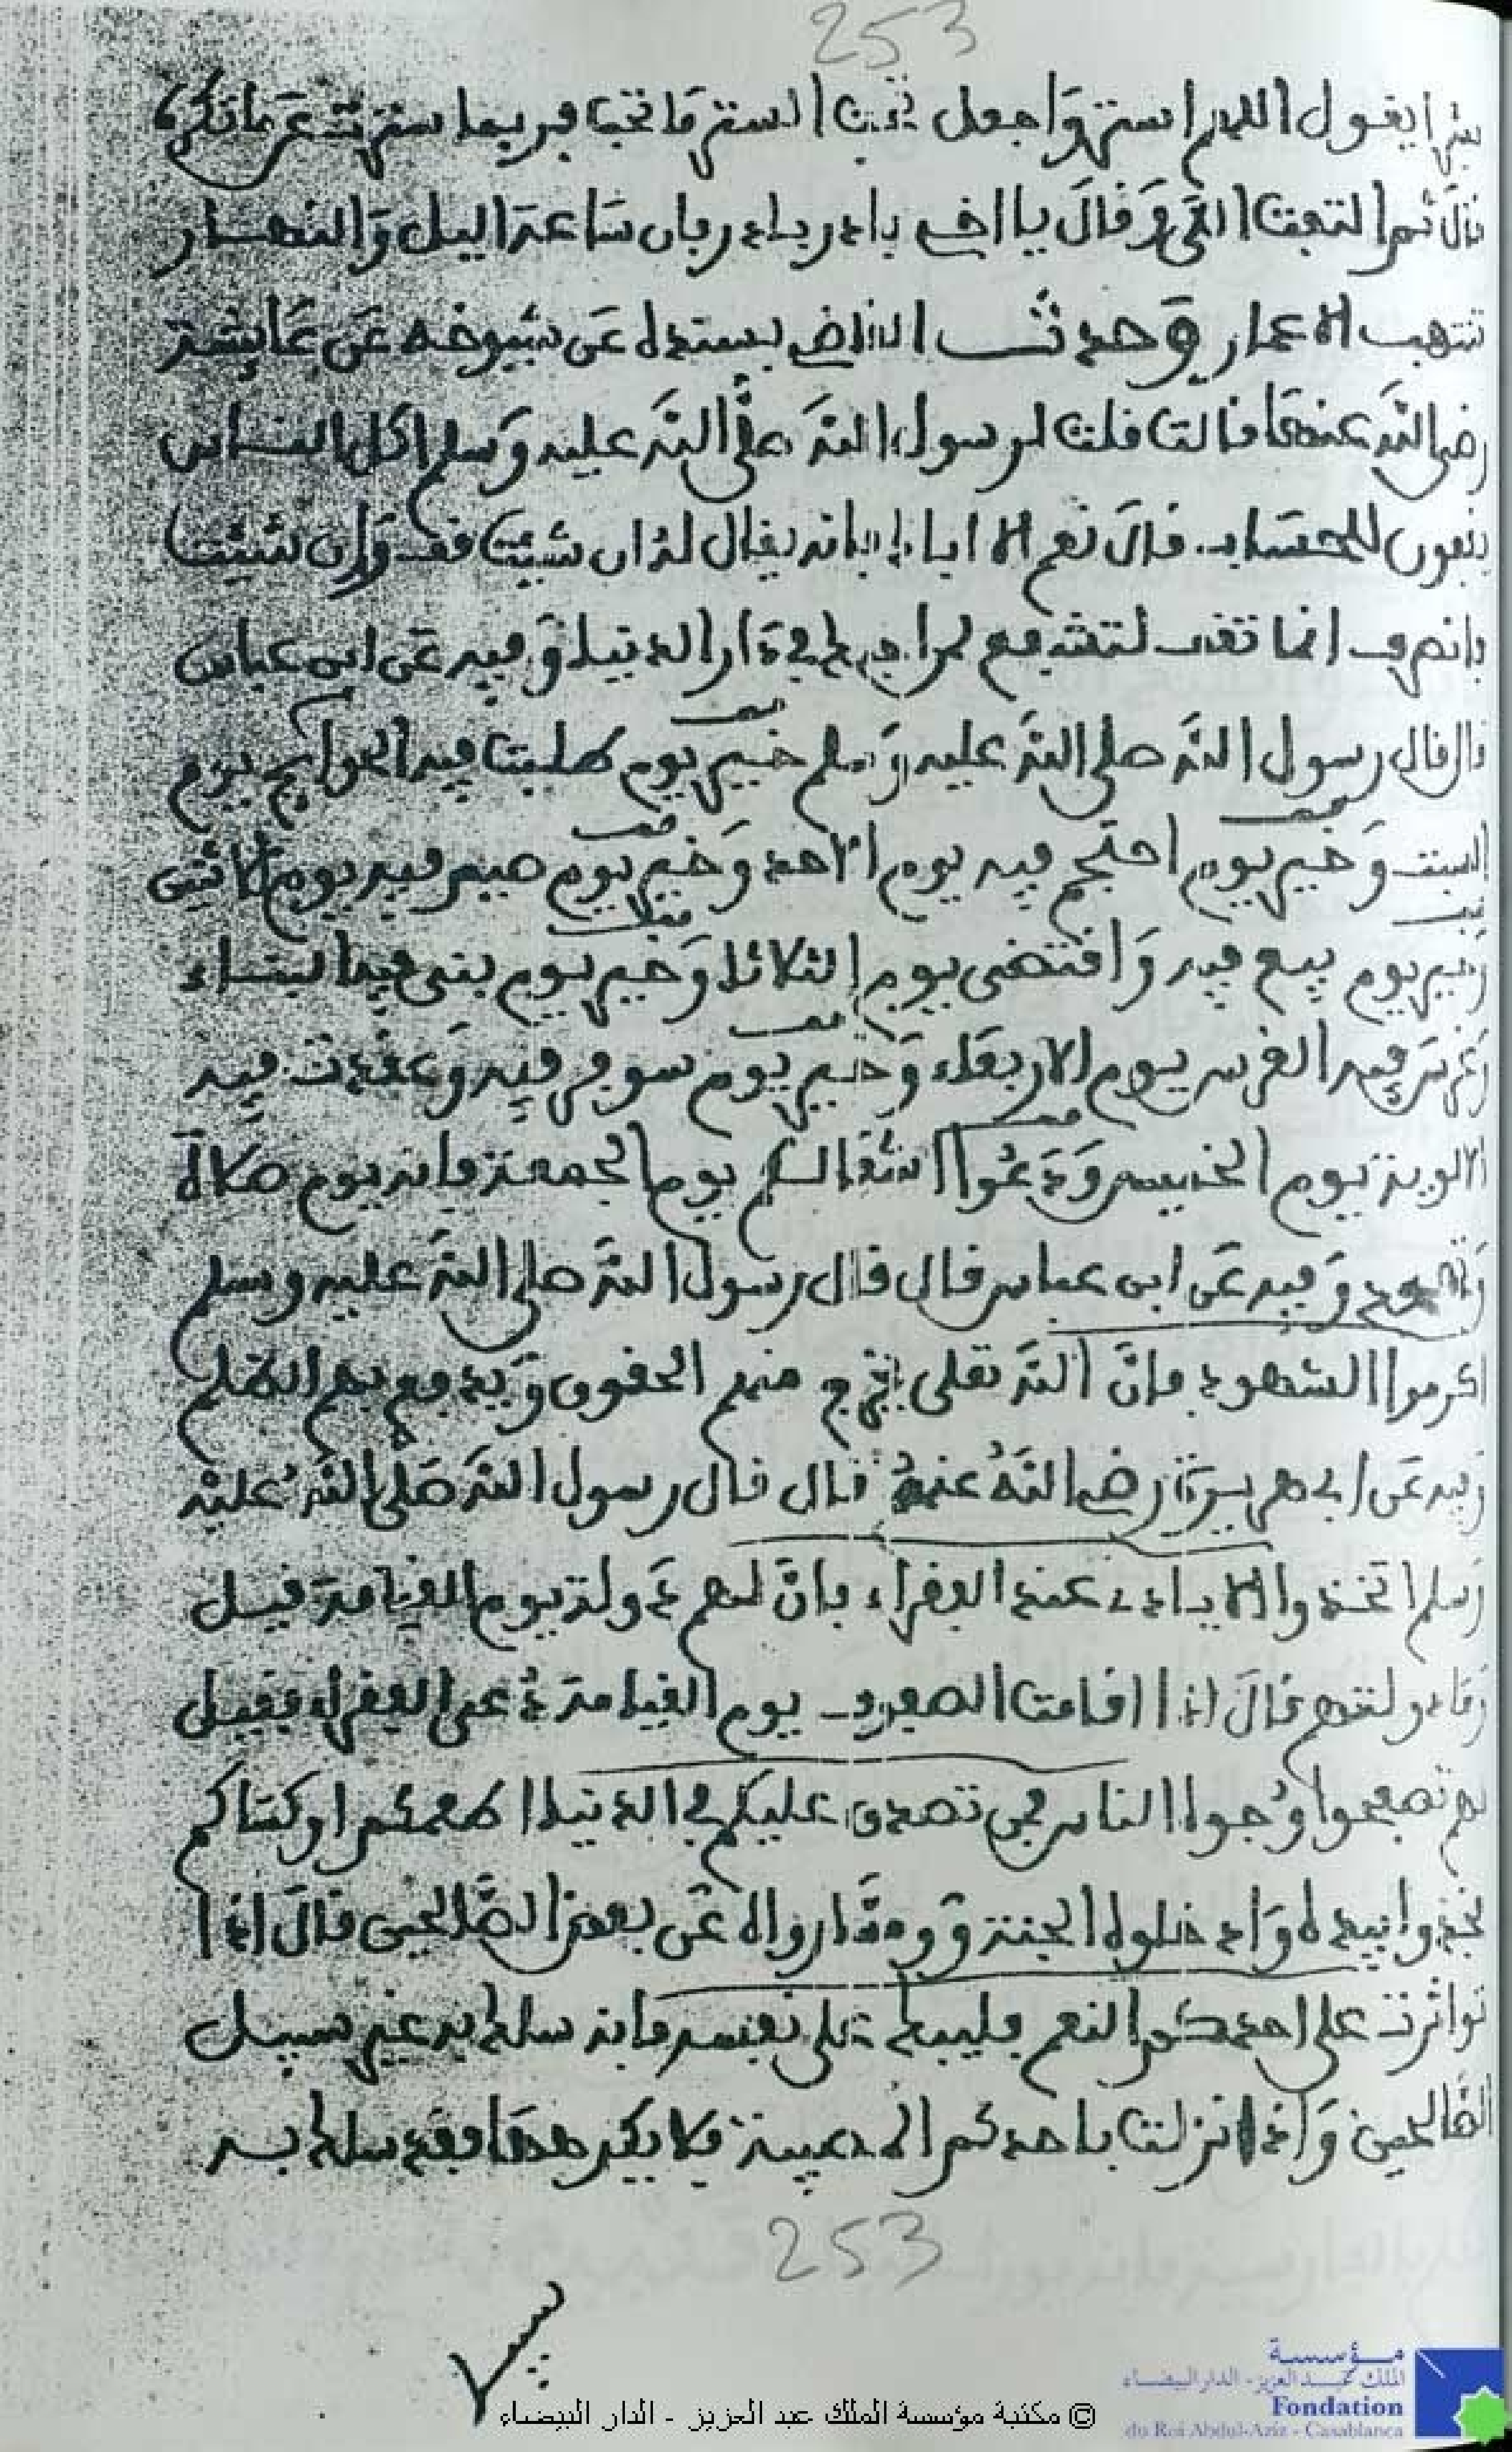 253
يقول اللهم استر واجعل تحت الستر ما تحب فربما سترت عن ما تكره
قال ثم التفت الي وقال يا اخي بادر بادر بان ساعة اليل والنهار
تنتهب الاعمار وحدثنا القاضي بسنده عن شيوخه عن عايشة
رضي الله عنها قالت قلت لرسول الله صلى الله عليه وسلم اكل الناس
يقفون للحساب قال نعم الا ابا بكر فانه يقال له ان شيت قف وان شيت
فانصرف انما تقف لتشفع لمن احبك في دار الدنيا وفيه عن ابن عباس
قال قال رسول الله صلى الله عليه وسلم خير يوم طلبت فيه الحوايج يوم
السبت وخير يوم احتجم فيه يوم الاحد وخير يوم صيم فيه يوم الاثنين
وخير يوم بيع فيه واقتضى يوم الثلاثا وخير يوم بني فيه البناء
وغرس فيه الغرس يوم الاربعاء وخير يوم سوفر فيه وعقدت فيه
الالوية يوم الخميس ودعوا اشغالكم يوم الجمعة فانه يوم صلاة
وتهجد وفيه عن ابن عباس قال قال رسول الله صلى الله عليه وسلم
اكرموا الشهود فان الله تعلى يخرج منهم الحقوق ويدفع بهم الظلم
وفيه عن ابي هريرة رضي الله عنه قال قال رسول الله صلى الله عليه
وسلم اتخذوا الايادي عند الفقراء فان لهم دولة يوم القيامة قيل
وما دولتهم قال اذا قامت الصفوف يوم القيامة دعي الفقراء فقيل
لهم تصفحوا وجوه الناس فمن تصدق عليكم في الدنيا اطعمكم او كساكم
فخذوا بيده وادخلوه الجنة ومما رواه عن بعض الصالحين قال اذا
تواترت على احدكم النعم فليبك على نفسه فانه سلك به غير سبيل
الصالحين واذا نزلت باحدكم المصيبة فلا يكرهها فقد سلك به
253
سبيل
© مكتبة مؤسسة الملك عبد العزيز - الدار البيضاء
مؤسسة
الملك عبد العزيز - الدار البيضاء
Fondation
du Roi Abdul-Aziz - Casablanca